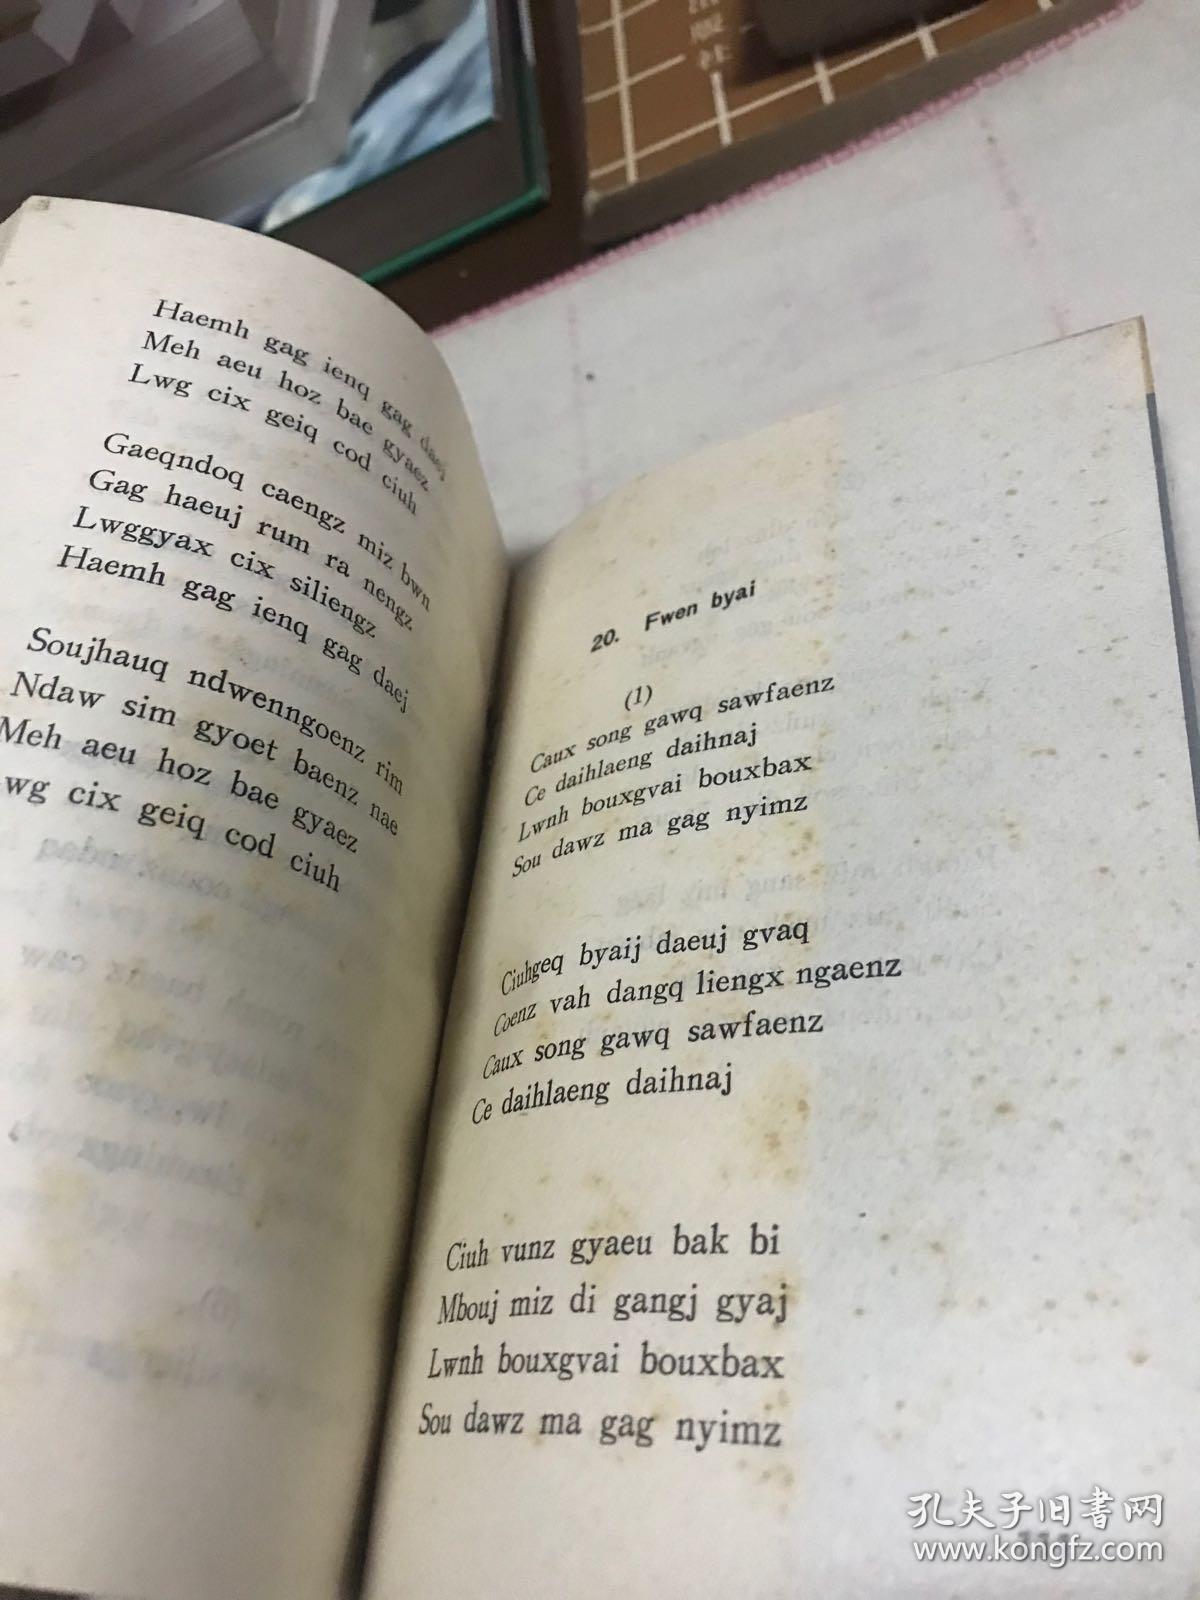 Haemh gag ienq gag daej
Meh aeu hoz bae gyaez
Lwg cix geiq cod ciuh
Gaeqndoq caengz miz bwn
Gag haeuj rum ra nengz
Lwggyax cix siliengz
Haemh gag ienq gag daej
Soujhauq ndwenngoenz rim
Ndaw sim gyoet baenz nae
Meh aeu hoz bae gyaez
wg cix geiq cod ciuh
20. Fwen byai
(1)
Caux song gawq sawfaenz
Ce daihlaeng daihnaj
Lwnh bouxgvai bouxbax
Sou dawz ma gag nyimz
Ciuhgeq byaij daeuj gvaq
Coenz vah dangq liengx ngaenz
Caux song gawq sawfaenz
Ce daihlaeng daihnaj
Ciuh vunz gyaeu bak bi
Mbouj miz di gangj gyaj
Lwnh bouxgvai bouxbax
Sou dawz ma gag nyimz
孔夫子旧书网
www.kongfz.com